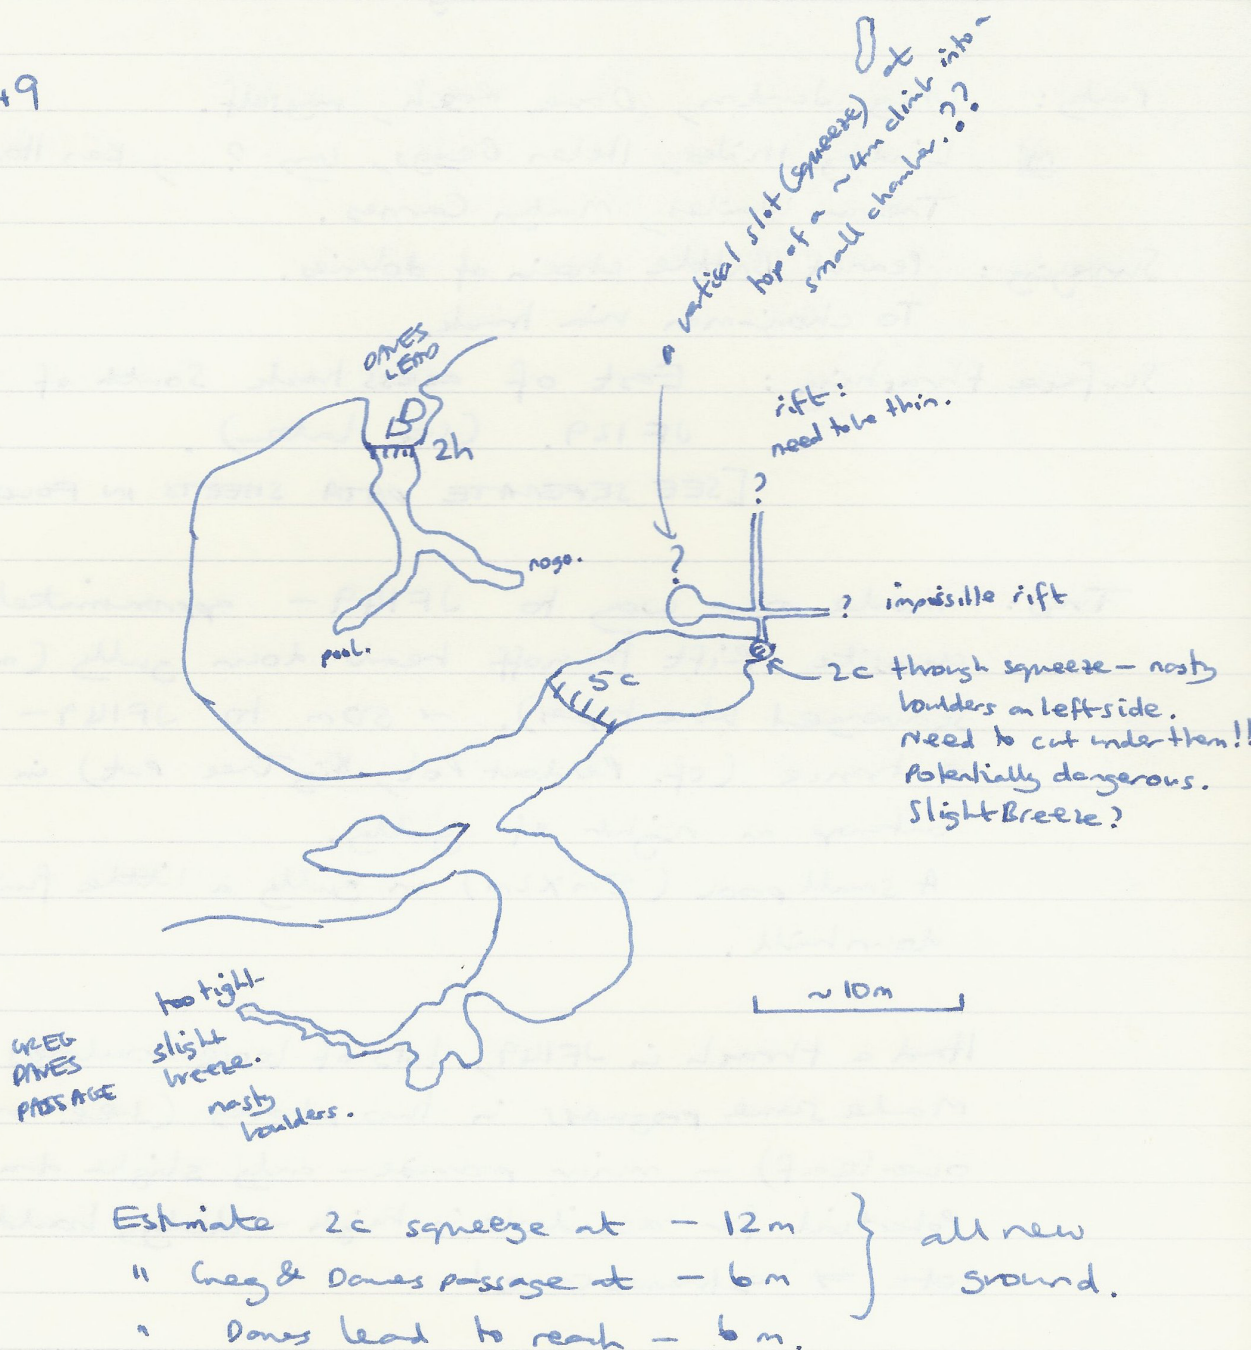 +9
vertical slot (squeeze) at
top of a ~ 4m climb into a
small chamber.??
DAVES
LEAD
rift:
need to be thin.
D
B
2h
?
nogo.
?
? impossible rift
pool.
5c
2c through squeeze - nasty
boulders on left side.
Need to cut under them!!
Potentially dangerous.
Slight Breeze?
~ 10m
too tight
slight
breeze.
nasty
boulders.
GREG
DAVES
PASSAGE
Estimate 2c squeeze at - 12m
" Greg & Daves passage at - 6m
all new
ground.
" Daves lead to reach - 6m.